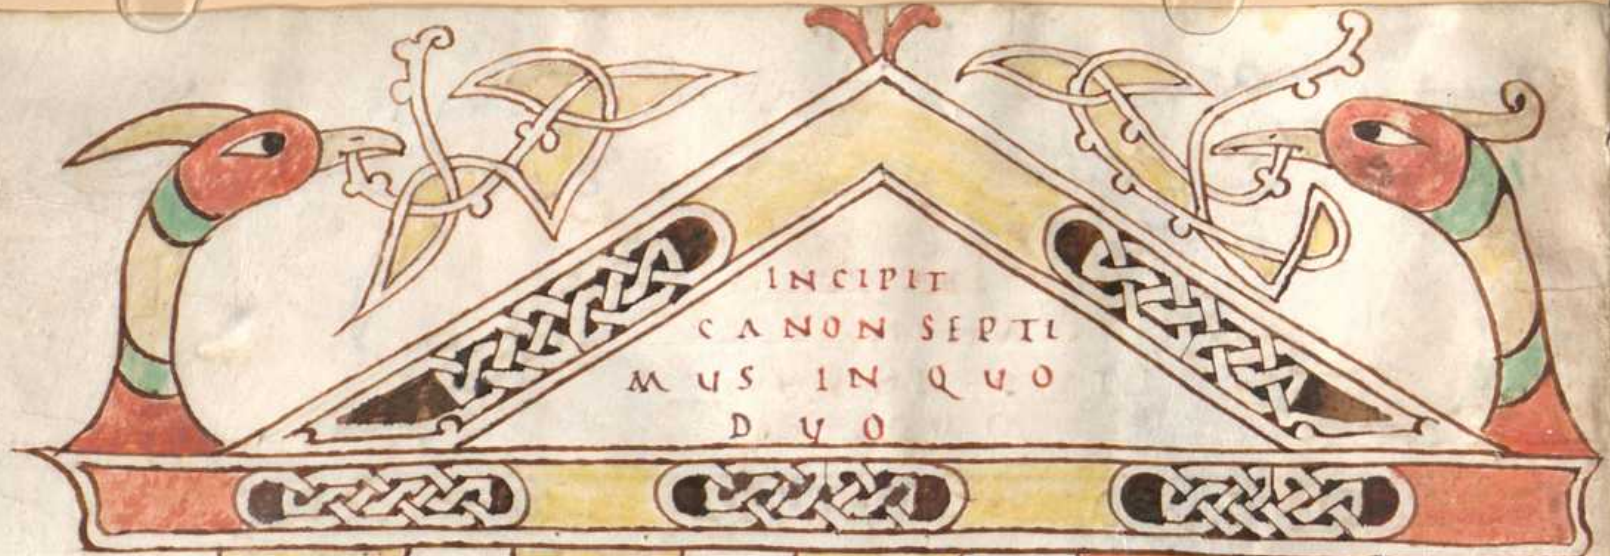 INCIPIT
CANON SEPTI
MUS IN QUO
DYO